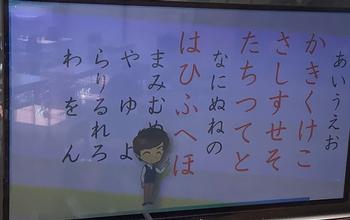 あいうえお
かきくけこ
さしすせそ
たちつてと
なにぬねの
はひふへほ
まみむめ
やゆよ
らりるれろ
わをん